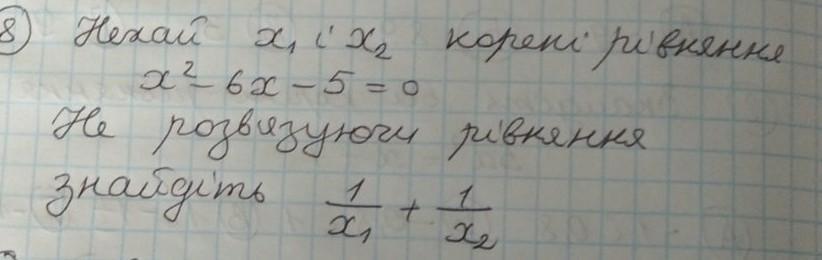 8) Нехай x₁ і x₂ корені рівняння
x² - 6x - 5 = 0
Не розвязуючи рівняння
знайдіть 1/x₁ + 1/x₂